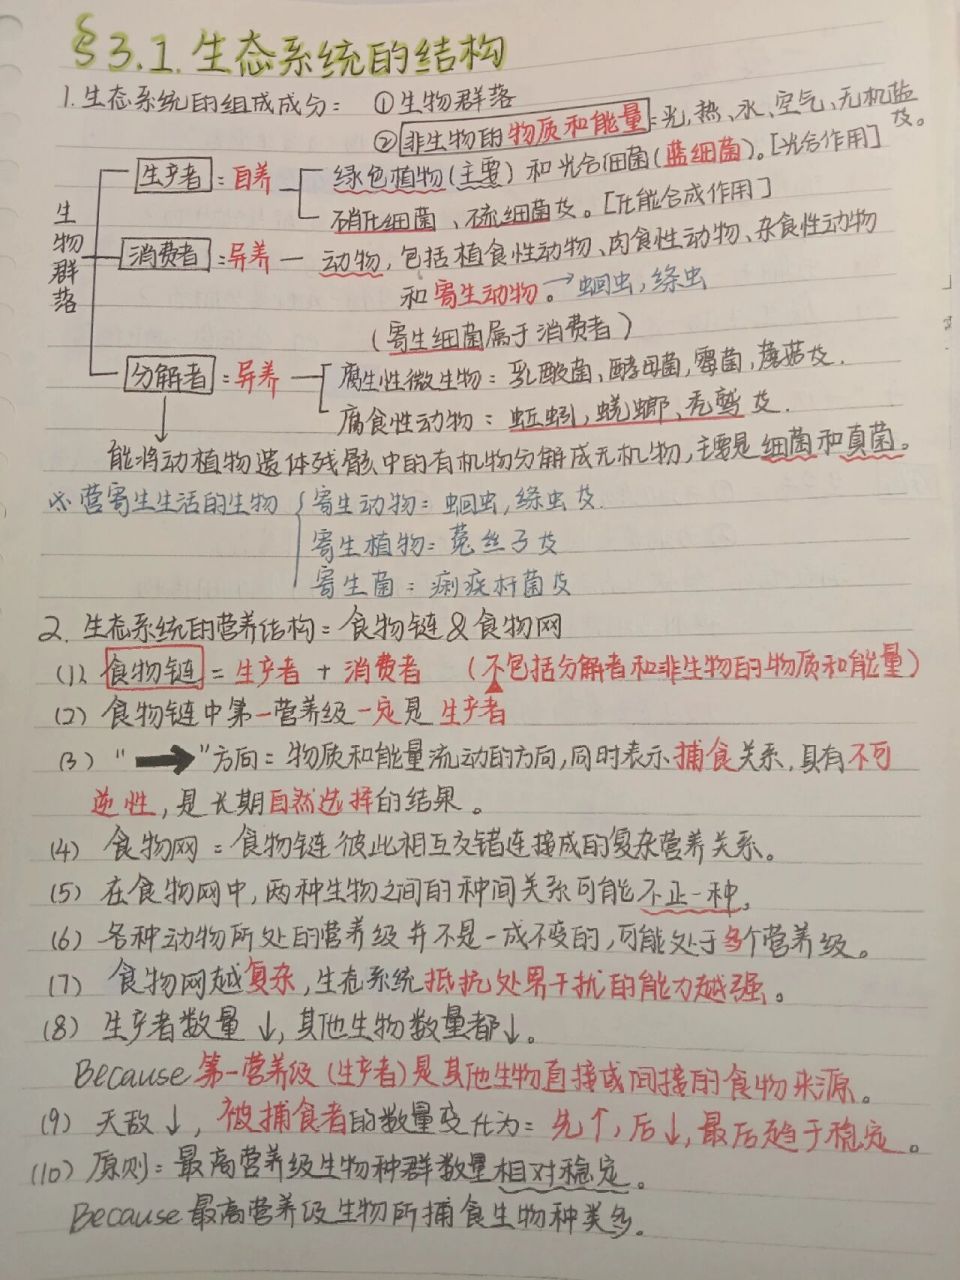 §3.1.生态系统的结构
1.生态系统的组成成分: ①生物群落
②非生物的物质和能量:光,热、水、空气、无机盐及。
生物群落
生产者:自养 绿色植物(主要)和光合细菌(蓝细菌)。[光合作用]
硝化细菌、硫细菌及。[化能合成作用]
消费者:异养— 动物,包括植食性动物、肉食性动物、杂食性动物
和寄生动物。→蛔虫,绦虫
(寄生细菌属于消费者)
分解者:异养 腐生性微生物:乳酸菌、酵母菌,霉菌,蘑菇及.
腐食性动物:蚯蚓,蜣螂、秃鹫及.
能将动植物遗体残骸中的有机物分解成无机物,主要是细菌和真菌。
※营寄生生活的生物 寄生动物:蛔虫,绦虫及.
寄生植物:菟丝子及
寄生菌:痢疾杆菌及
2.生态系统的营养结构:食物链&食物网
(1)、食物链=生产者+消费者 (不包括分解者和非生物的物质和能量)
(2)食物链中第一营养级一定是生产者
(3)“→”方向:物质和能量流动的方向,同时表示捕食关系,具有不可
逆性,是长期自然选择的结果。
(4)食物网:食物链彼此相互交错连接成的复杂营养关系。
(5)在食物网中,两种生物之间的种间关系可能不止一种,
(6)各种动物所处的营养级并不是一成不变的,可能处于多个营养级。
(7)食物网越复杂,生态系统抵抗外界干扰的能力越强。
(8)生产者数量↓,其他生物数量都↓。
Because第一营养级(生产者)是其他生物直接或间接的食物来源。
(9)天敌↓,被捕食者的数量变化为:先↑,后↓,最后趋于稳定。
(10)原则:最高营养级生物种群数量相对稳定。
Because最高营养级生物所捕食生物种类多。